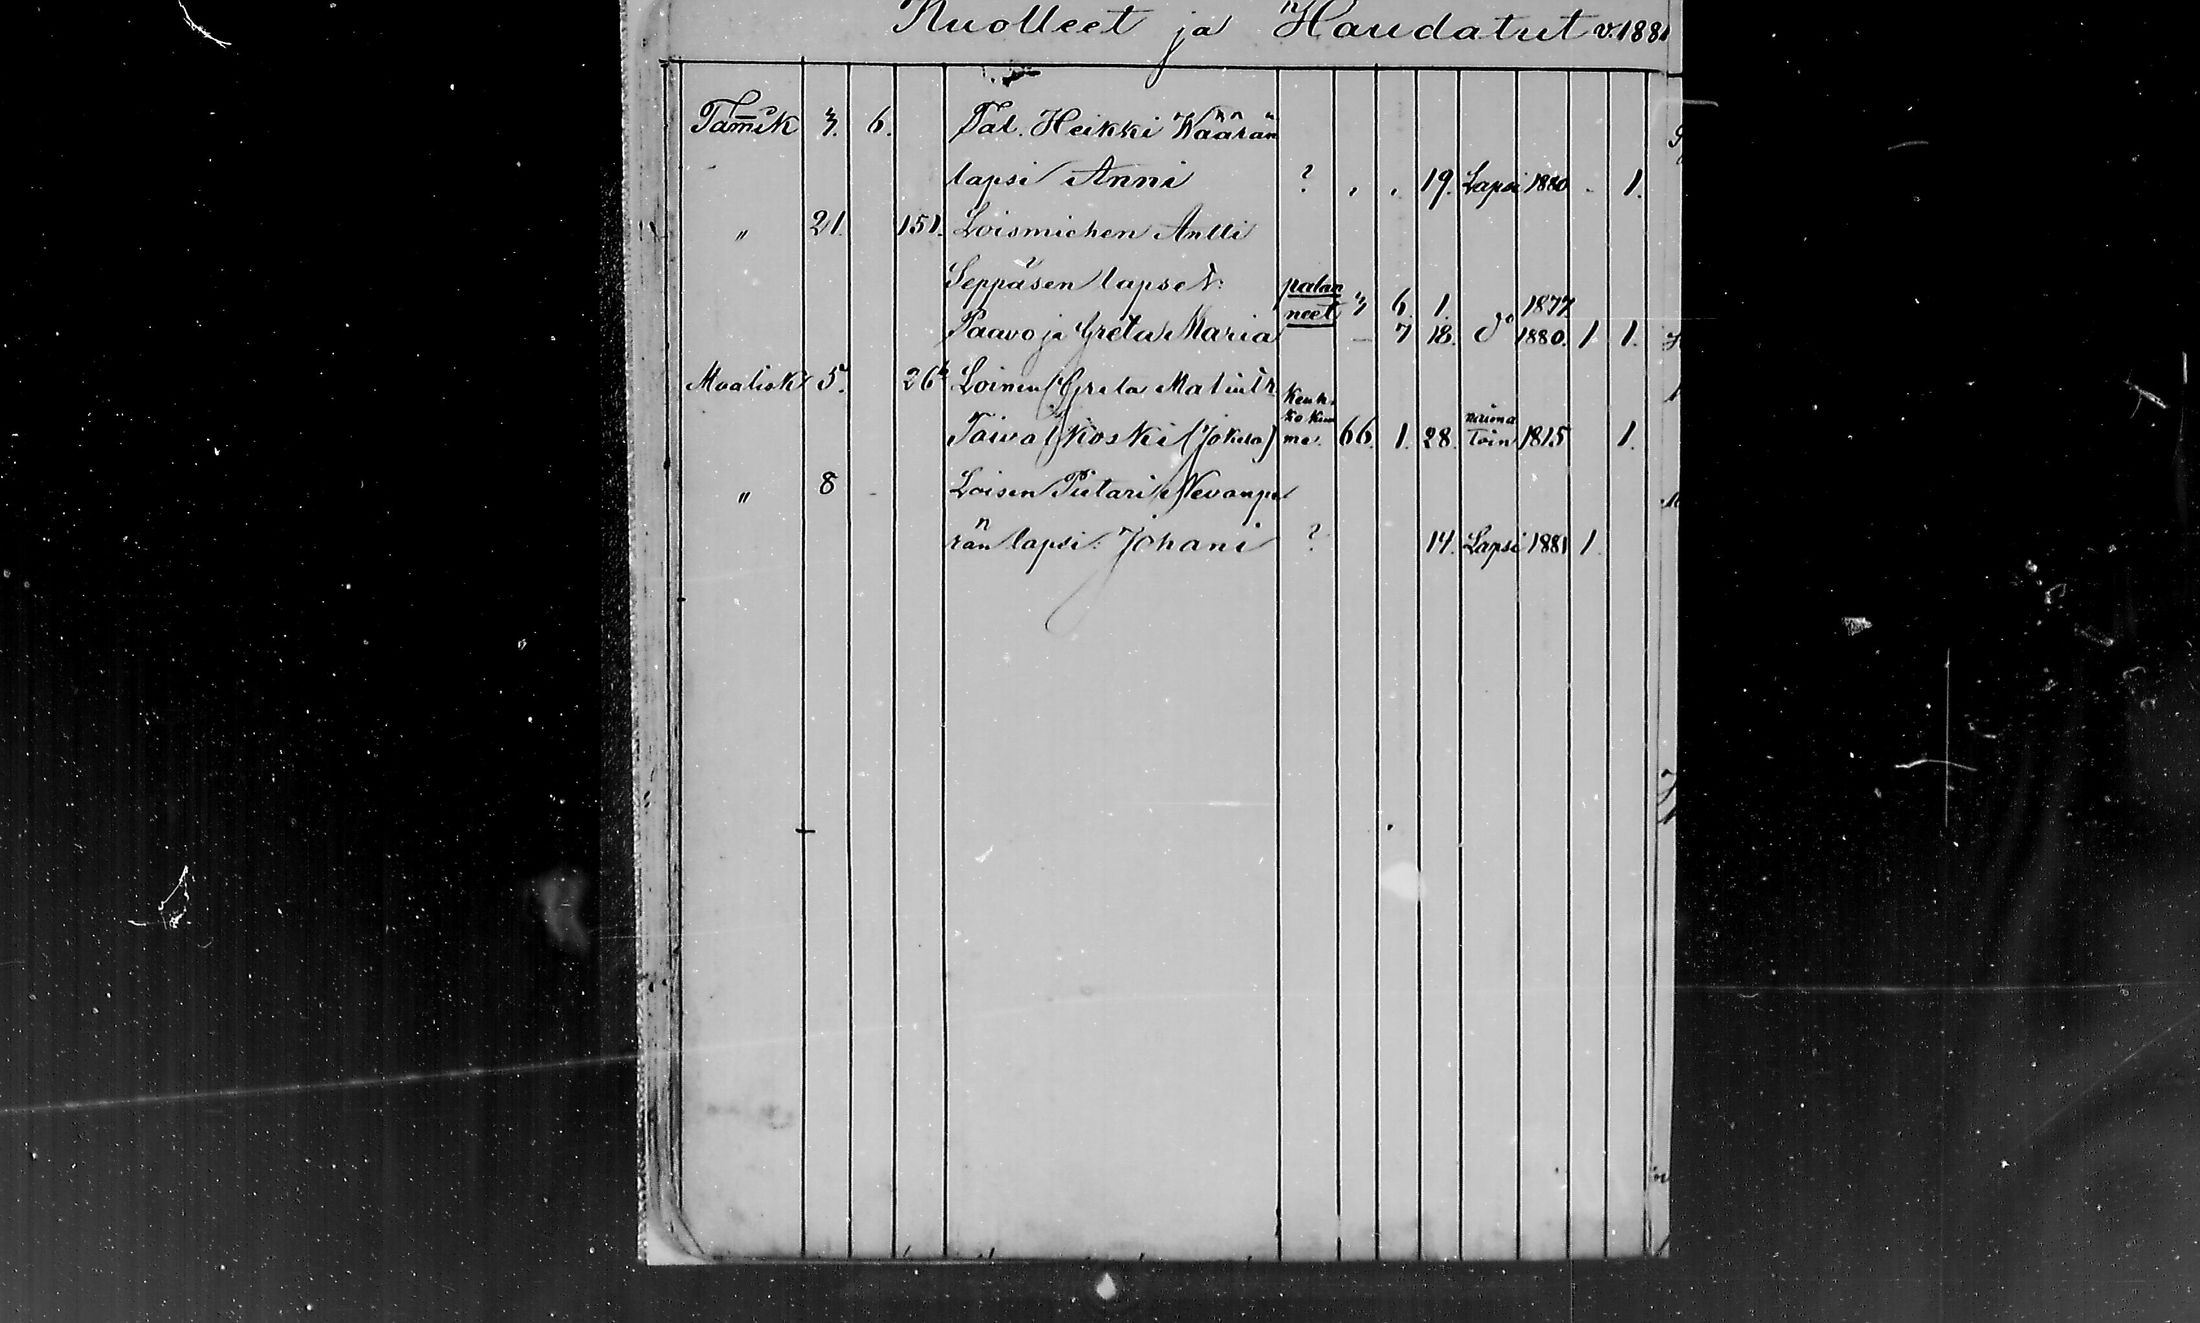 Kuolleet ja Haudatut v. 1881
Tam̅ik 3. 6. Tal. Heikki Käärän
lapsi Anni ? " " 19. Lapsi 1880 - 1.
" 21. 151. Loismiehen Antti
Seppäsen lapset: palan
neet 3 6. 1. 1877
Paavo ja Greta Maria - 7 18. do 1880. 1 1.
Maalisk 5. 26 Loinen Greta Matintr
Keuh
Toivo koski (Jokela) ko kuu
me. 66. 1. 28. naima
toin 1815 1.
" 8 - Loisen Pietari Nevanpe
rän lapsi: Johani ? 14. Lapsi 1881 1